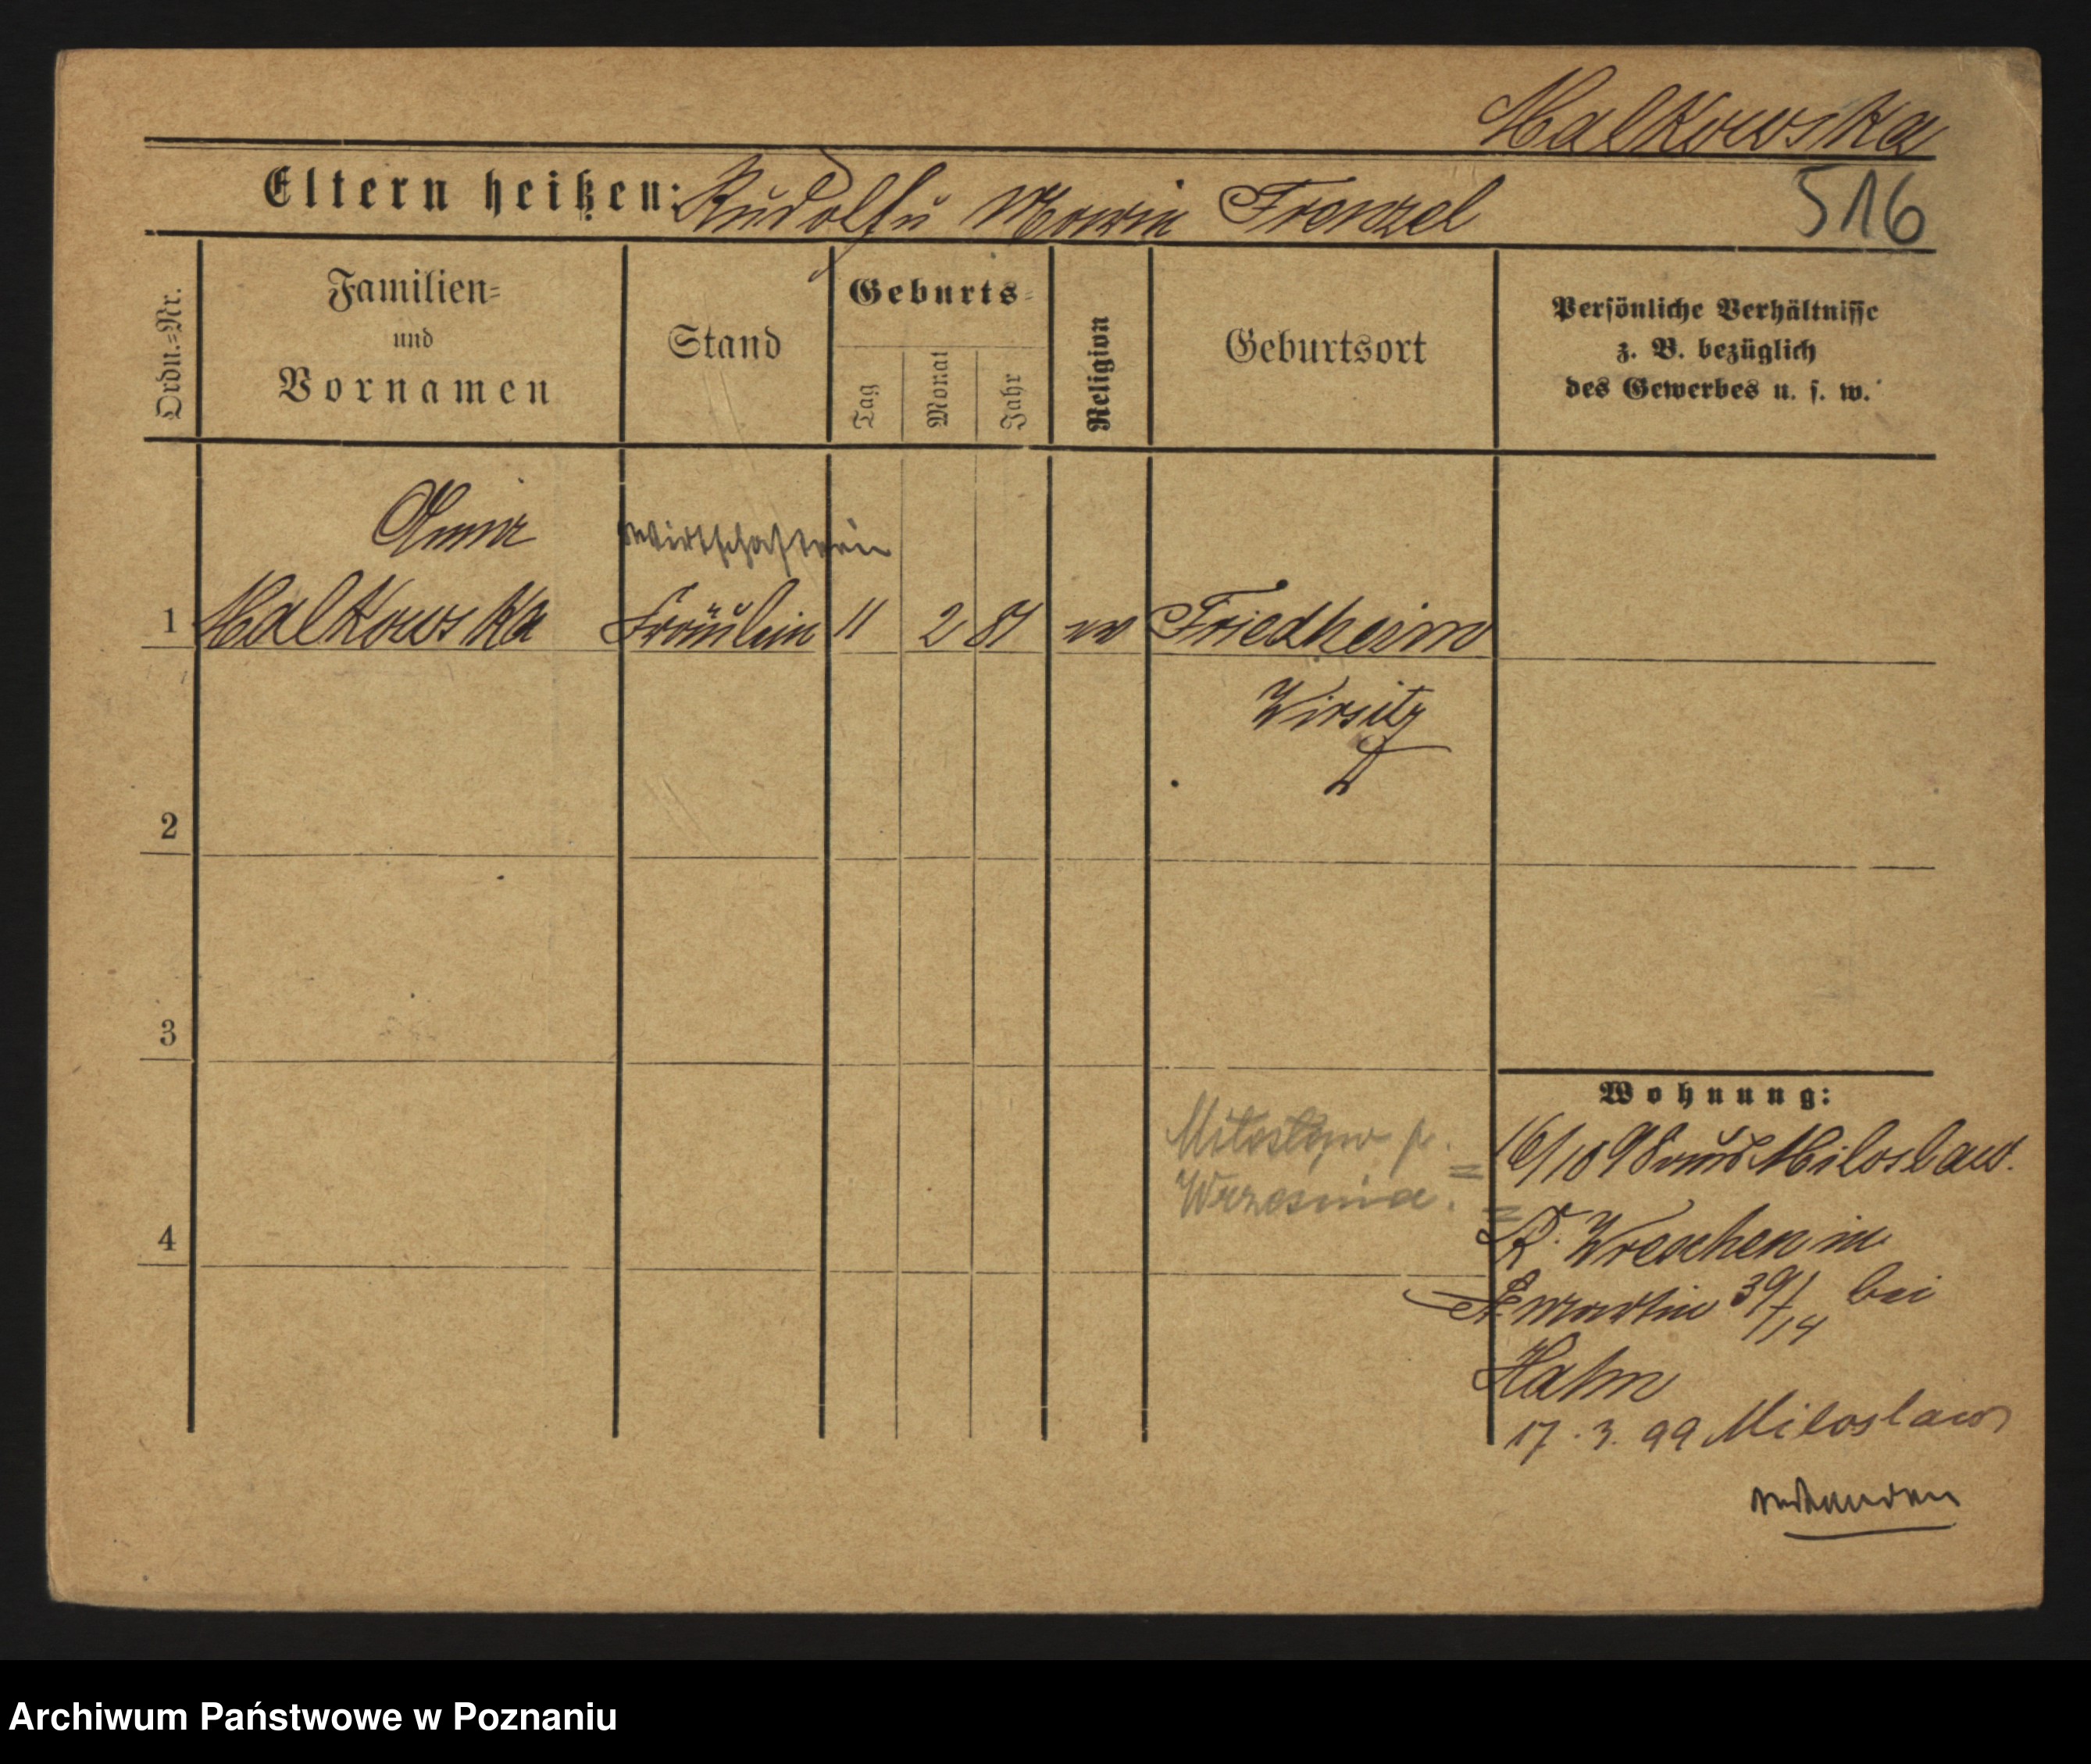 Malkowska
Eltern heißen: Rudolf u Maria Frenzel
516
Ordn.=Nr.
Familien=
und
Vornamen
Stand
Geburts=
Tag
Monat
Jahr
Religion
Geburtsort
Persönliche Verhältnisse
z. B. bezüglich
des Gewerbes u. s. w.
Anna
Wirtschafterin
1 Malkowska Fräulein 11 2 81 Friedheim
Wirsitz
2
3
Wohnung:
16/10 98 aus Miloslaw.
Miłosław p.
Września.
K. Wreschen in
4
St Martin 39/14 bei
Hahn
17.3.99 Miloslaw
Archiwum Państwowe w Poznaniu